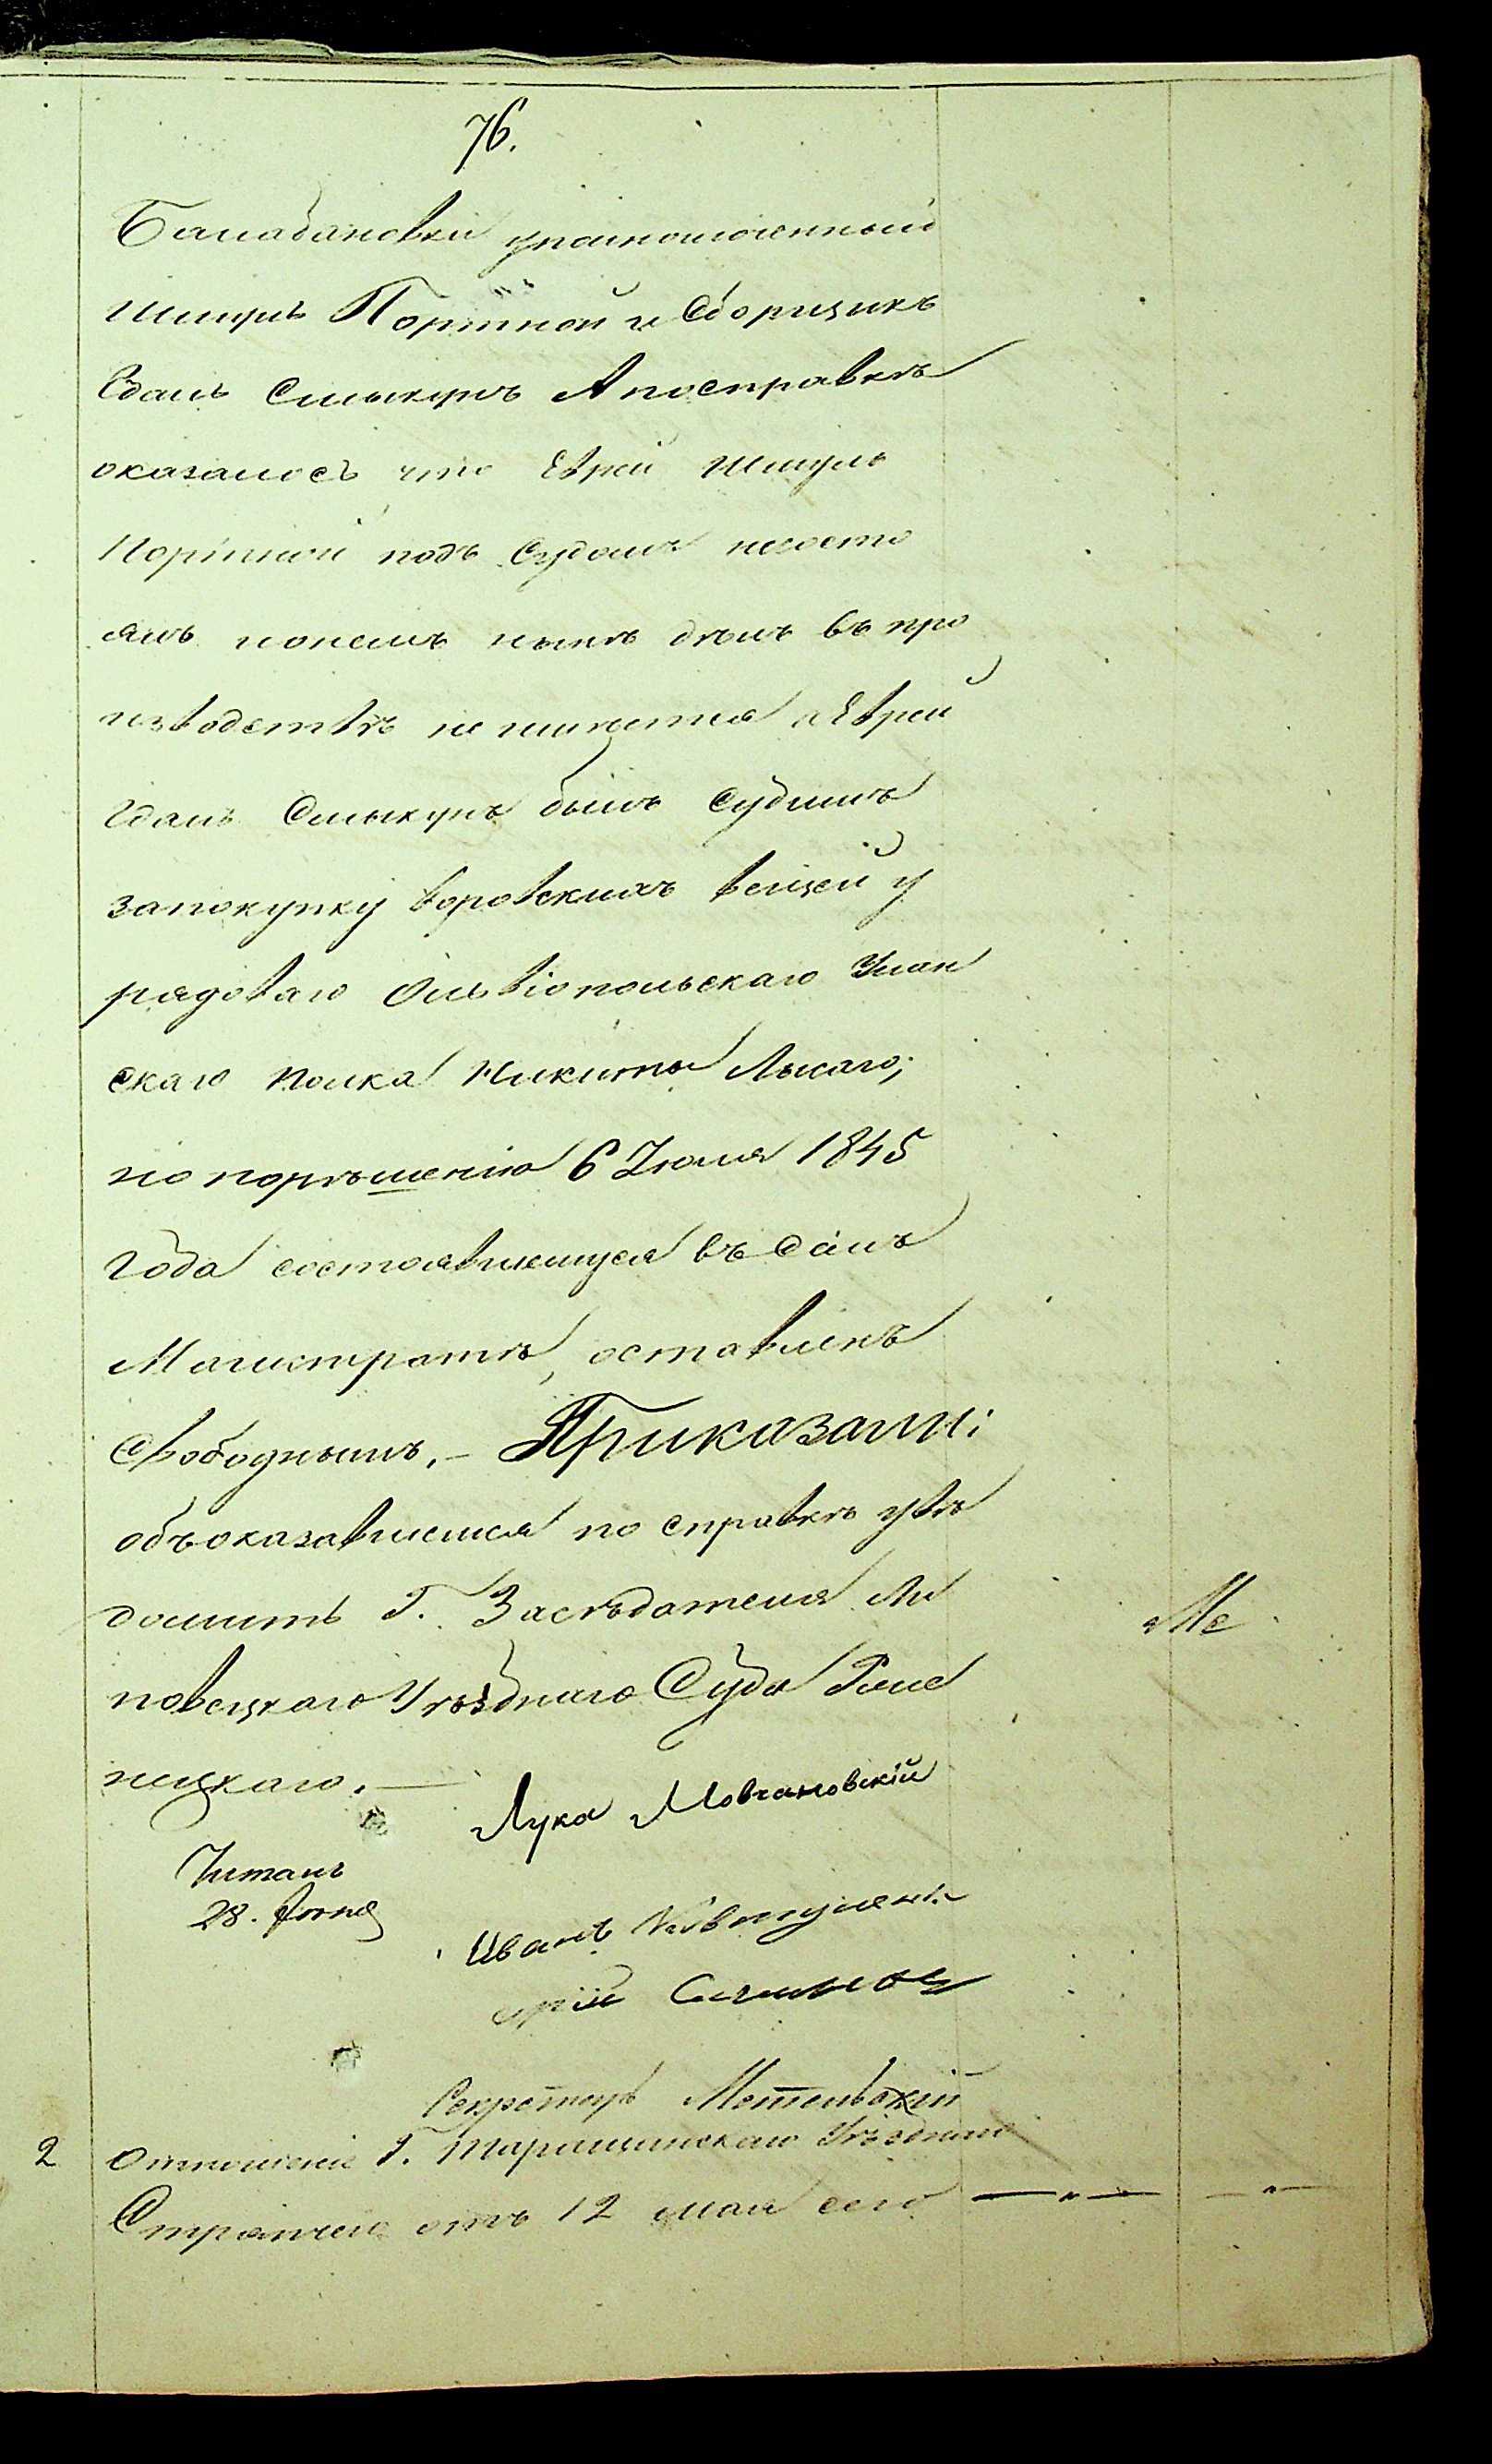 76.
Балабановки уполномоченный
Шмуль Портной и Сборщикъ
Сданъ Смыкунъ А посправкѣ
оказалось что Еврей Шмуль
Портной подъ Судомъ несосто
ялъ понемъ нынѣ дѣлъ въ про
изводствѣ не имѣется а Еврей
Сданъ Смыкунъ былъ Судимъ
запокупку воровскихъ вещей у
рядоваго Ольвіопольскаго Улан
скаго полка Никиты Лысаго;
но порѣшенію 6 Іюля 1845
года состоявшемуся въ Семъ
Магистратѣ, оставленъ
Свободнымъ. – Приказали:
объоказавшемся по справкѣ увѣ
домить Г. Засѣдателя Ли
повецкаго Уѣзднаго Суда
нецкаго. —
Лука Мовчановскій
Читалъ
28.
Иванъ
Секретарь Метельскій
2 Отношеніе Г. Таращанскаго Уѣзднаго
Стряпчего отъ 12 мая сего — „ — — „ —